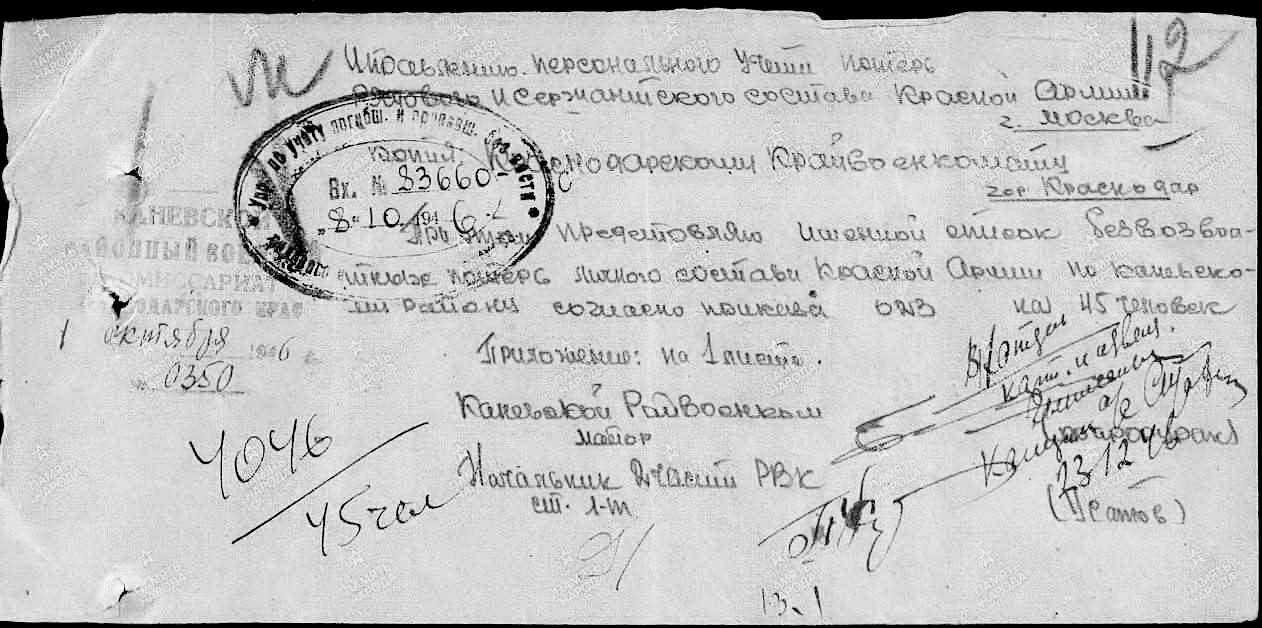 112
персонального учета потерь
Рядового и Сержантского состава Красной Армии
г. Москва
Копия: Краснодарскому Крайвоенкомату
гор. Краснодар
Упр. по учету погибш. и пропавш. без вести
Вх. № 83660
"8" 10 1946
КАНЕВСКОЙ
РАЙОННЫЙ
КОМИССАРИАТ
КРАСНОДАРСКОГО КРАЯ
1 октября 1946 г.
№ 0350
При этом представляю именной список безвозвра-
тных потерь личного состава Красной Армии по Каневско-
му району согласно приказа 023 на 45 человек
Приложение: на 1 листе.
Каневской Райвоенком
майор
Начальник 2 части РВК
ст. л-т
4046
45 чел
23.12.46
13.1